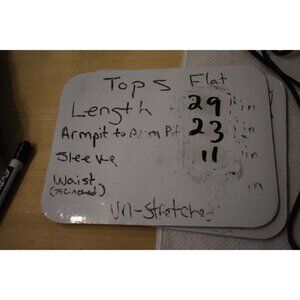 Tops Flat
Length 29 in
Armpit to Armpit 23
Sleeve 11 in
Waist in
(if cinched)
Un-Stretched